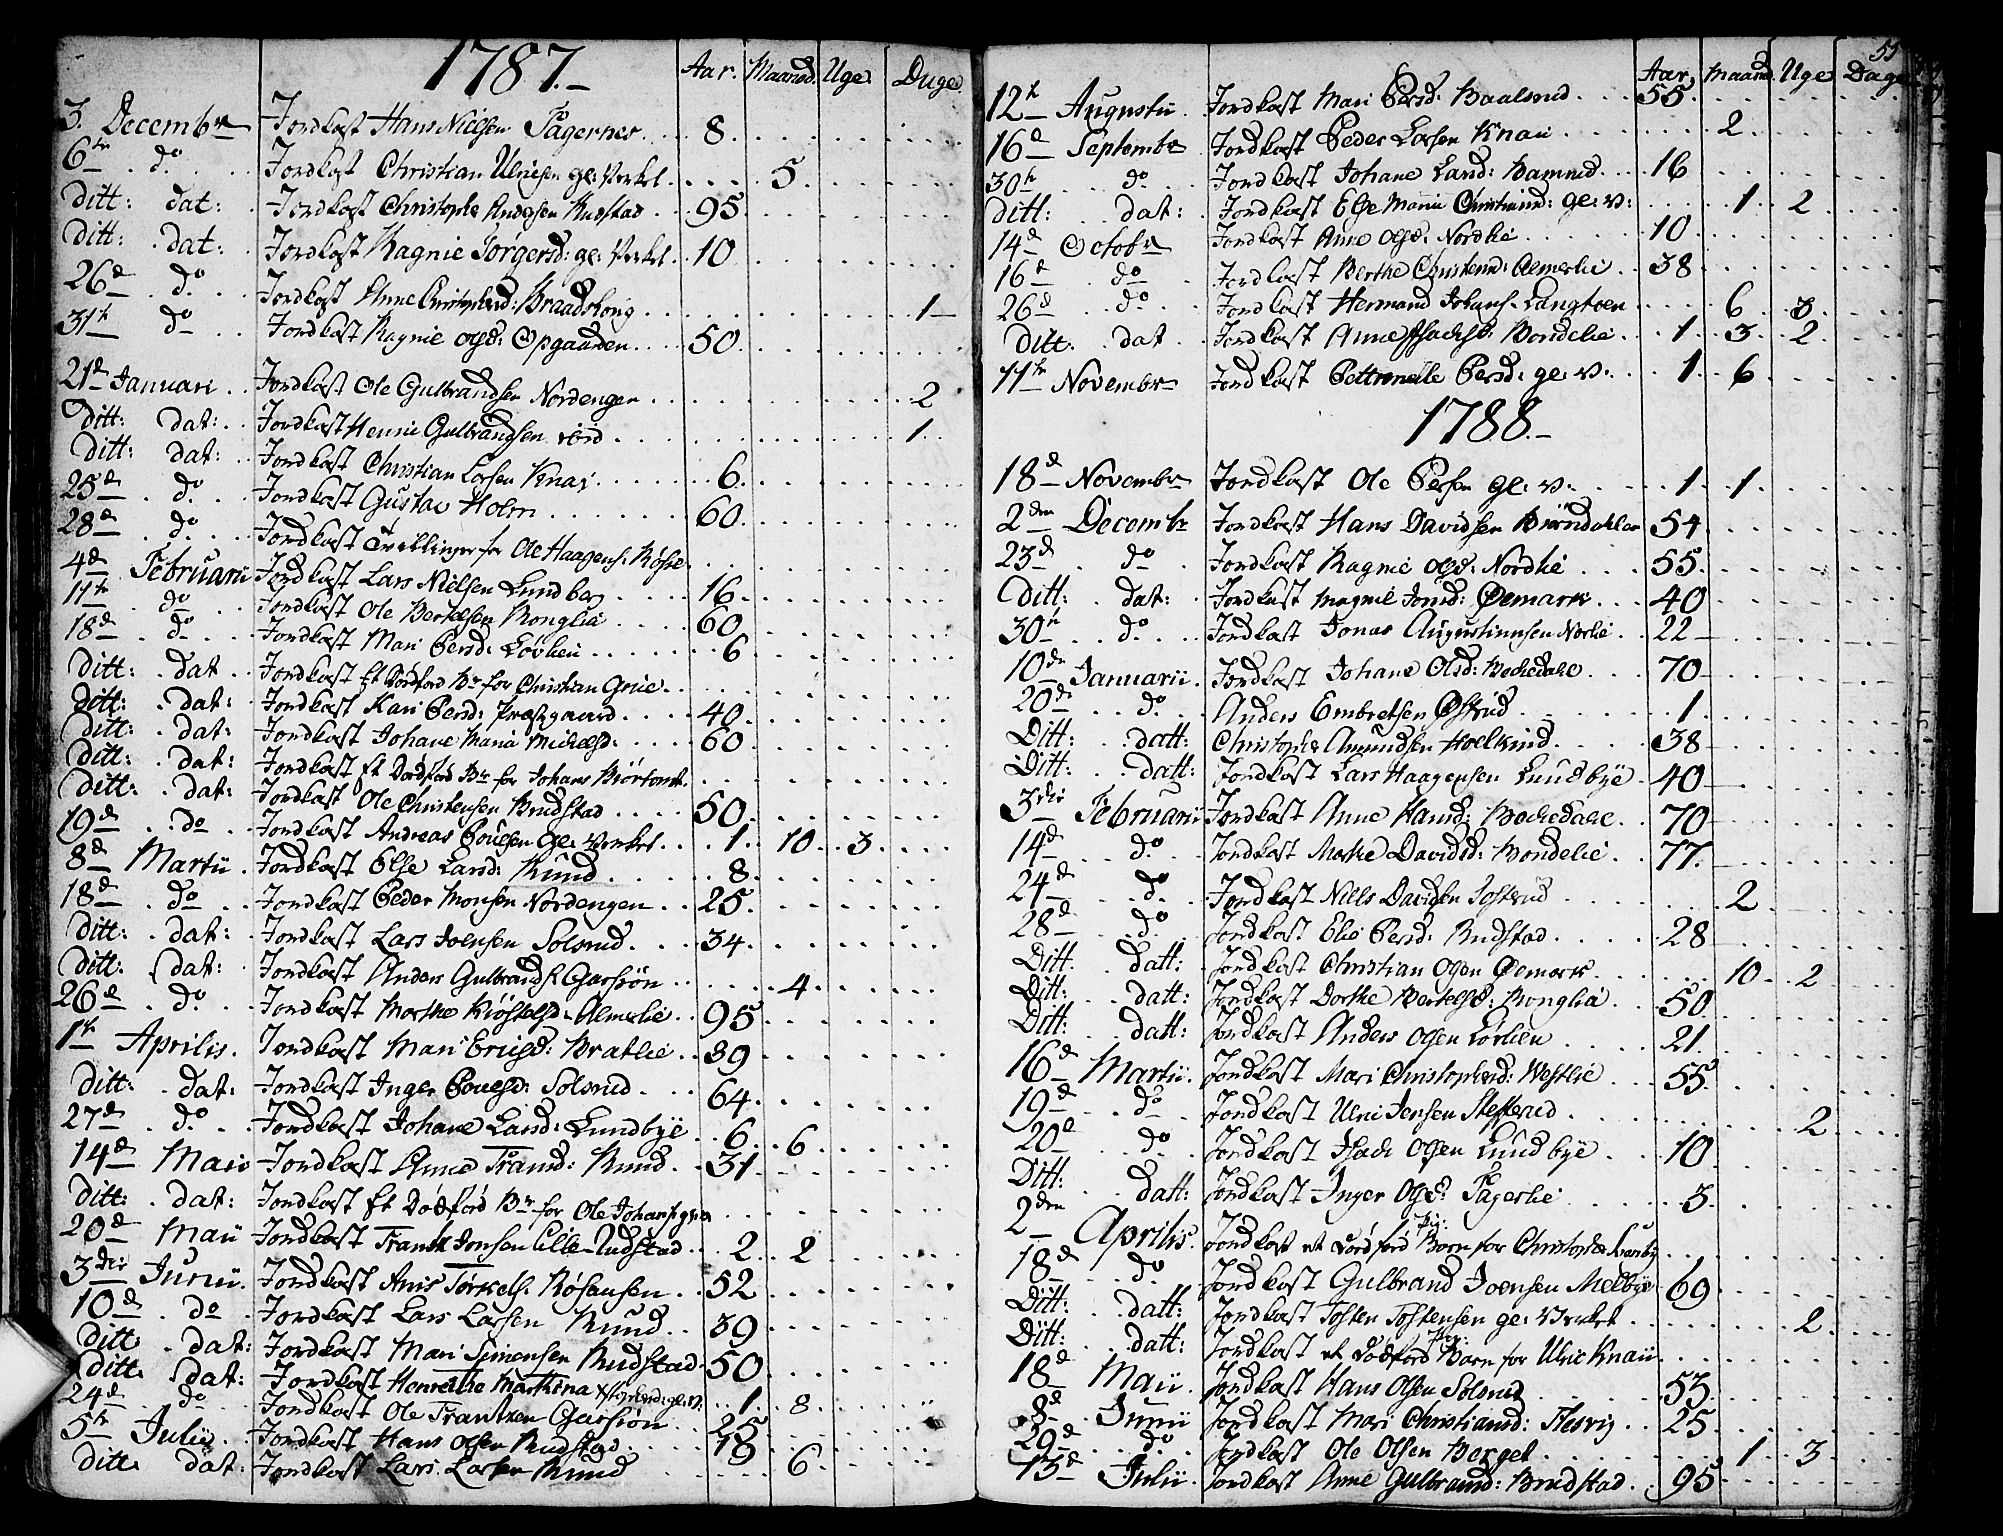 1787.
Aar. Maaned. Uge. Dage
3. Decembr Jordkast Hans Nielsen Fagernes 8
6te do Jordkast Christian Ulrichsen gl: Verket 5
ditt: dat: Jordkast Christopher Rudstad 95
ditt: dat: Jordkast Ragnie Jørgersd: gl: Verket 10
26d do Jordkast Anne Christophersd: Braadskong 1
31te do Jordkast Ragnie Olsd: Opgaarden 50
21d Januari Jordkast Ole Gulbrandsen Nordengen 2
ditt: dat: Jordkast Henric Gulbrandsen ibid 1
ditt: dat: Jordkast Christian Larsen Knai 6
25d do Jordkast Gustav Holm 60
28d do Jordkast Tvillinger for Ole Haagens:
4d Februarii Jordkast Lars Nielsen Lundberg 16
11te do Jordkast Ole Bertelsen Ronglia 60
18d do Jordkast Mari Persd: Løvlien 6
ditt: dat Jordkast Et Dødfød Br for Christian Grue
ditt: dat: Jordkast Kari Persd: Præstgaard 40
ditt: dat: Jordkast Johane Maria Michelsd: 60
ditt: dat: Jordkast Et Dødfød Br for Johans
ditt: dat: Jordkast Ole Christensen Brudstad 50
19d do Jordkast Andreas Poulsen gl: Verket 1 10 3
8d Martii Jordkast Else Larsd: Rund 8
18d do Jordkast Peder Monsen Nordengen 25
ditt: dat: Jordkast Lars Joensen Solsrud 34
ditt: dat: Jordkast Anders Gulbrands: Garsiøn 4
26d do Jordkast Marthe Almerlie 95
1te Aprilis Jordkast Mari Erigsd: Bratlie 39
ditt: dat: Jordkast Inger Pouelsd: Solsrud 64
27d do Jordkast Johane Larsd: Lundbye 6 6
14d Maii Jordkast Anne Framd: Rund 31
ditt: dat: Jordkast Et Dødfød Br for Ole Johans:
20d Maii Jordkast Frantz Jensen Lille-Rudstad 2 2
3die Junii Jordkast Anis Torkels: Røsaasen 52
10d do Jordkast Lars Larsen Rund 39
ditt dat: Jordkast Mari Simensen Rudstad 50
ditt dat: Jordkast Henrette Marthina gl: V: 1 8
24d do Jordkast Ole Frantzen Garsiøn 25
5te Julii Jordkast Hans Olsen Rudstad 18
ditt dat: Jordkast Lars Larsen Rund 6
55
Aar. Maaned. Uge Dage
12te Augustii Jordkast Mari Persd: Baalsrud 55
16d Septembr Jordkast Peder Larsen Knai 2
30te do Jordkast Johane Larsd: Bamrud 16
ditt: dat: Jordkast Else Maria Christiansd: gl: v: 1 2
14d Octobr Jordkast Ane Olsd: Nordlie 10
16d do Jordkast Berthe Christensd: Almerlie 38
26d do Jordkast Hermand Johans: Langtoen 6 3
ditt: dat Jordkast Anne Isachsd: Bondelie 1 3 2
11te Novembr Jordkast Pettronelle Persd: gl: v: 1 6
1788.
18d Novembr Jordkast Ole Persen gl: v: 1 1
2den Decembr Jordkast Hans Davidsen Biørndahlen 54
23d do Jordkast Ragnie Olsd: Nordlie 55
Ditt: dat: Jordkast Magnil Jonsd: Øemark 40
30te do Jordkast Jonas Augustinusen Norlie 22
10de Januarii Jordkast Johane Olsd: Bechedahl 70
20de do Anders Embretsen Østrud 1
Ditt: datt: Christopher Amundsen Hoelkind 38
Ditt: datt: Jordkast Lars Haagensen Lundbye 40
3die Februarii Jordkast Anne Hansd: Bechedahl 70
14d do Jordkast Marthe Davidsd: Bondelie 77
24d do Jordkast Niels Davidsen Sostrud 2
28d do Jordkast Elie Persd: Rudstad 28
Ditt: datt: Jordkast Christian Olsen Øemark 10 2
Ditt: datt: Jordkast Dorthe Bertelsd: Ronglia 50
Ditt: datt: Jordkast Anders Olsen Lovlien 21
16d Martii Jordkast Mari Christophersd: Westlie 55
19d do Jordkast Ulric Jensen Stefferud 2
20d do Jordkast Isach Olsen Lundbye 10
Ditt: datt: Jordkast Inger Olsd: Fagerlie 3
2den Aprilis Jordkast et Dødfød Pig: Barn for Christopher
18d do Jordkast Gulbrand Joensen Melbye 69
Ditt: datt: Jordkast Tosten Tostensen gl: Værket 2
Ditt: datt: Jordkast et Dødfød Barn for Ulric Knaii
18d Maii Jordkast Hans Olsen Solsrud 53
8d Junii Jordkast Mari Christiansd: Flesvig 25
29d do Jordkast Ole Olsen Berget 1 3
13d Julii Jordkast Anne Gulbransd: Brudstad 95